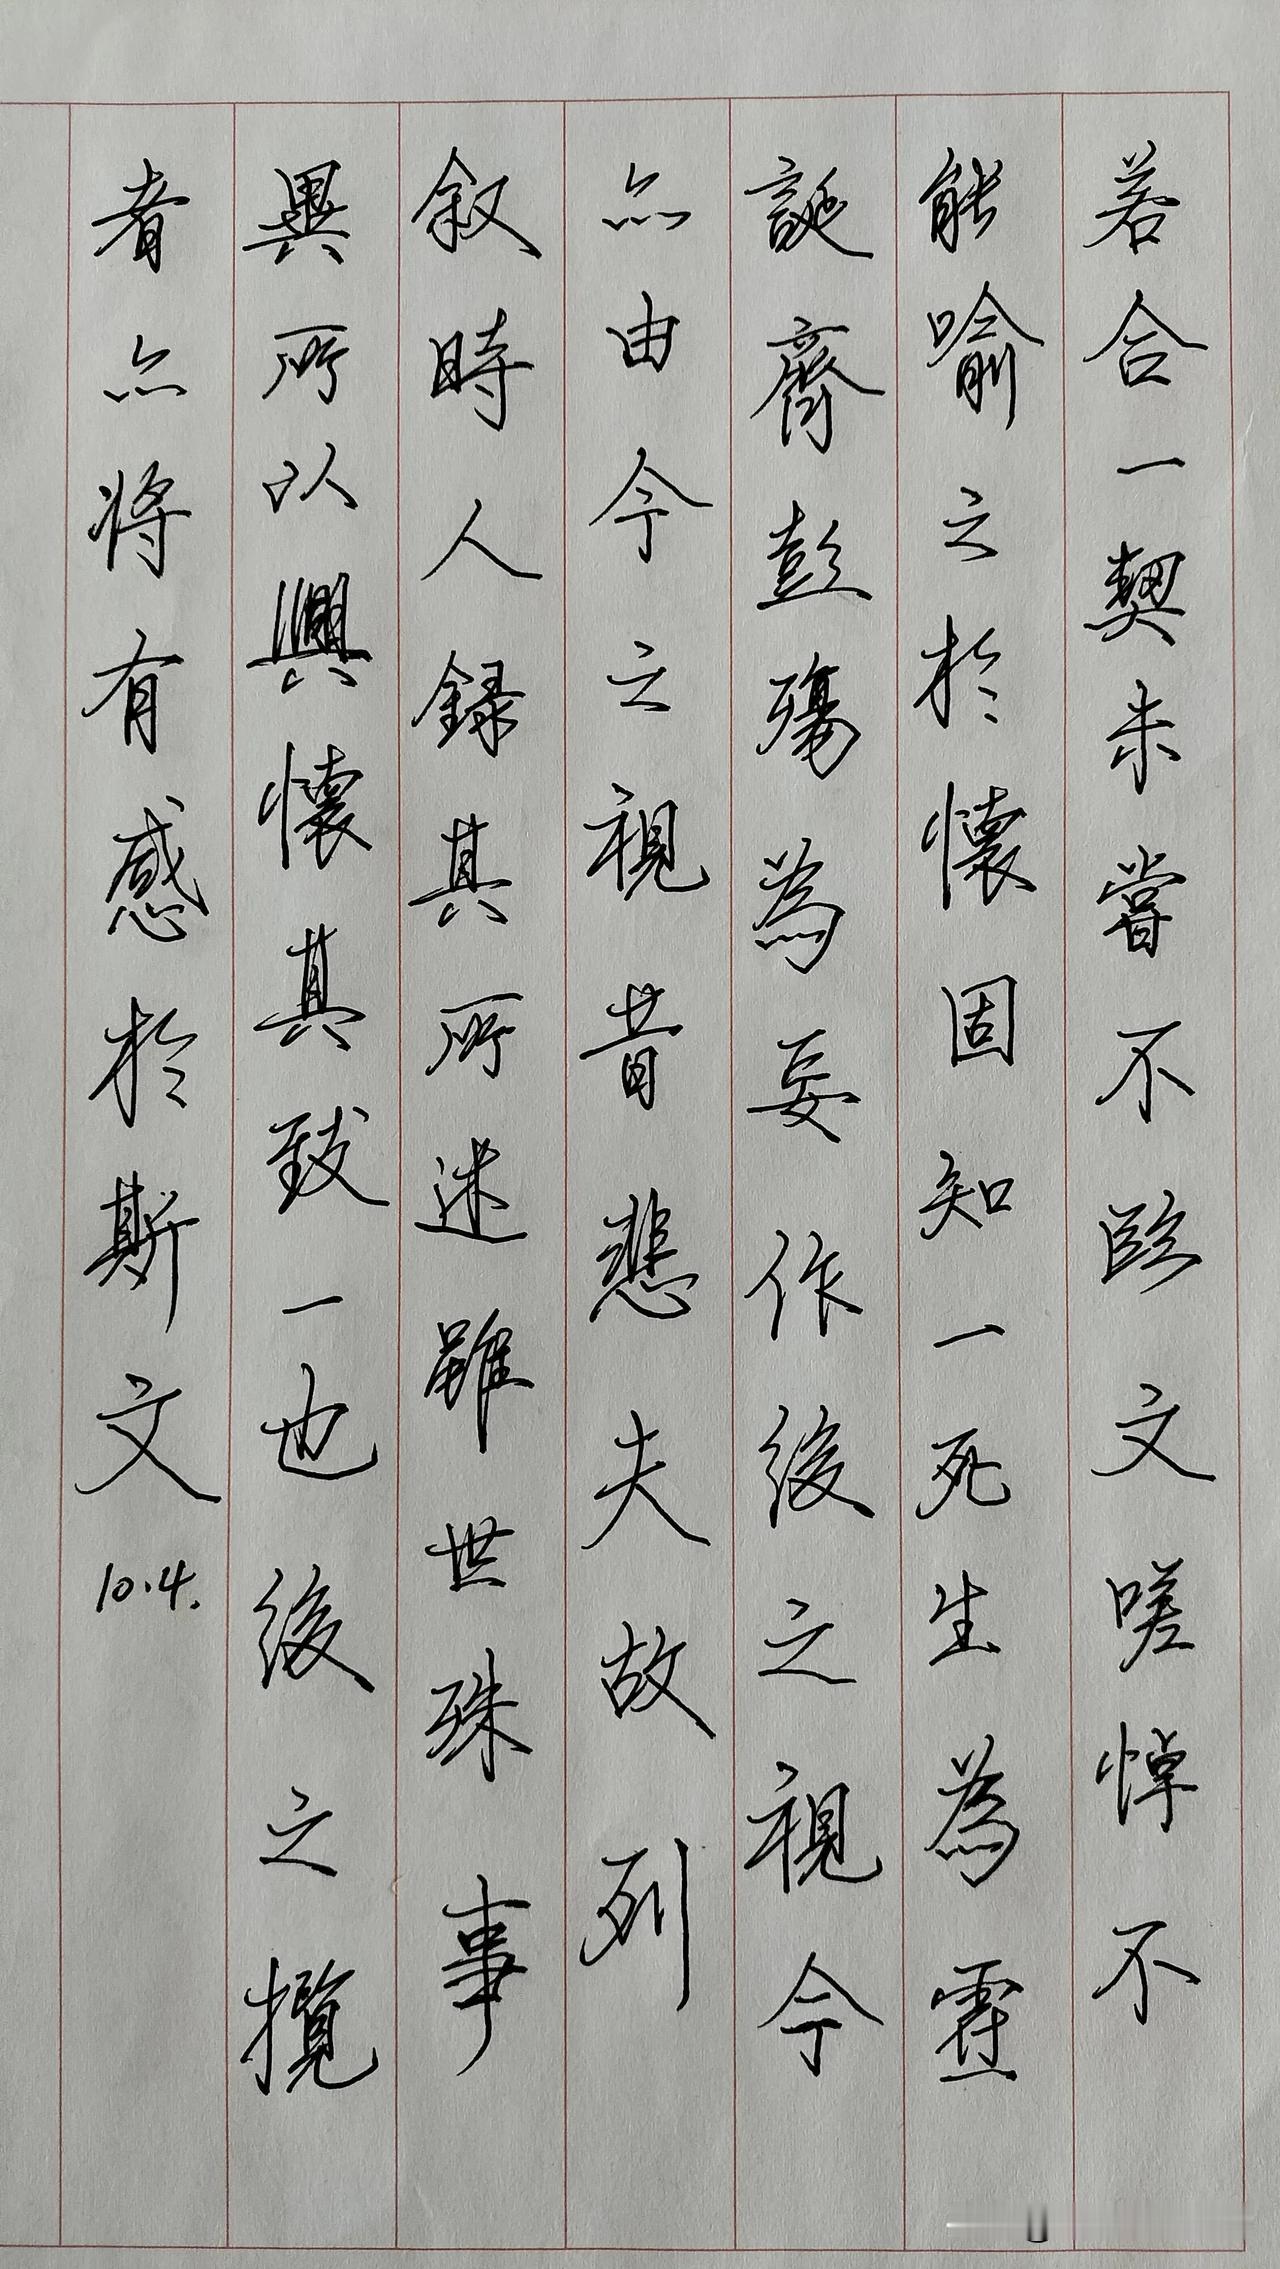 若合一契未嘗不臨文嗟悼不
能喻之於懷固知一死生為虛
誕齊彭殤為妄作後之視今
亦由今之視昔悲夫故列
叙時人録其所述雖世殊事
異所以興懷其致一也後之攬
者亦將有感於斯文
10.4.